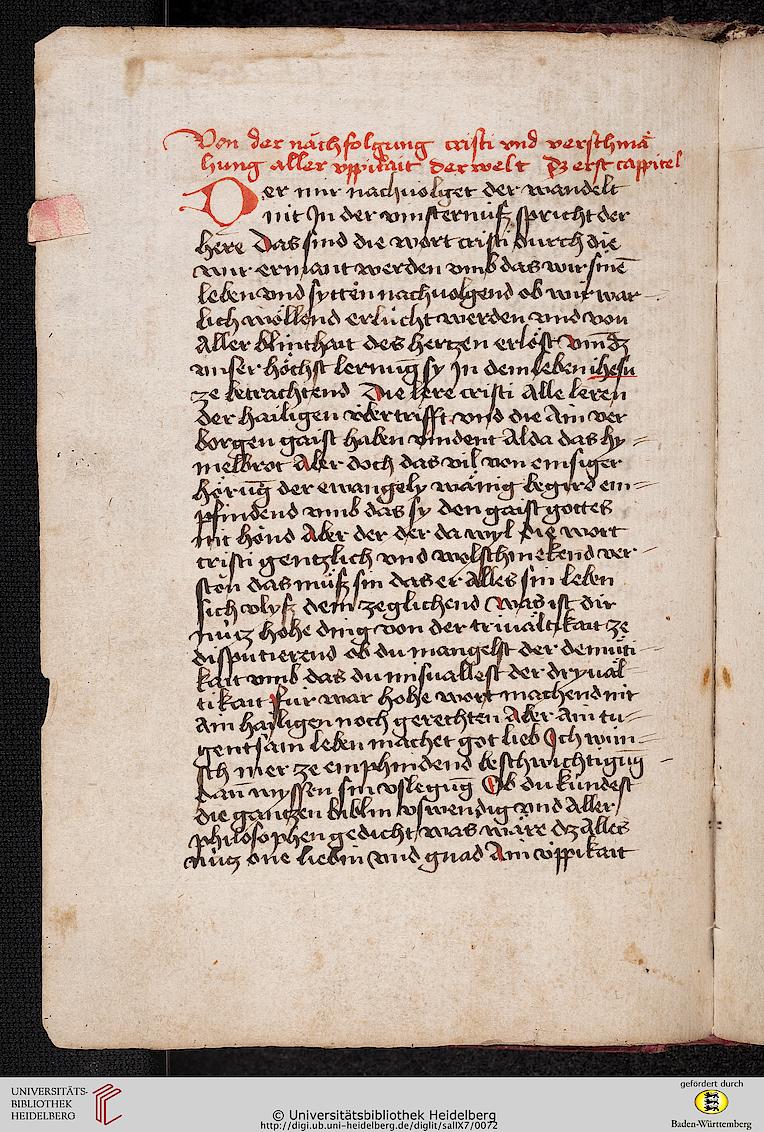 Von der nächfolgung cristi vnd verschmä
hung aller vppikait der welt Dz erst cappitel
Der mir nachuolget der wandelt
nit In der vinsternúß spricht der
here Das sind die wort cristi durch die
wir ermant werden vmb das wir sinē
leben vnd sytten nachuolgend ob wir war
lich wöllend erlücht werden vnd von
Aller blinthait des hertzen erlöst vmdz
vnser höchst lernūg sy In dem leben ihesu
ze betrachtend Die lere cristi Alle leren
der hailigen vbertrifft vnd die Ain ver
borgen gaist haben vindent Alda das hy=
melbrot Aber doch das vil von emsiger
hörūg der ewangely wänig begird em=
pfindend vmb das sy den gaist gottes
nit hönd Aber der der da wyl die wort
cristi gentzlich vnd wolschmekend ver
stön das müß sin das er Alles sin leben
sich vlyß dem zeglichend Was ist dir
nütz hohe ding von der triualtikait ze
disputierend ob du mangelst der demüti
kait vmb das du misuallest der dryual
tikait für war hohe wort machend nit
Ain hailigen noch gerechten Aber Ain tu=
gentsam leben machet got lieb Ich wun=
sch mer ze emphindend beschwichtigūg
dan wyssen sin vslegūg Ob du kündest
die gantzen biblin vswendig vnd Aller
philosophen gedicht was wäre dz alles
nütz one liebin vnd gnad Ain vppikait
UNIVERSITÄTS-
BIBLIOTHEK
HEIDELBERG
© Universitätsbibliothek Heidelberg
http://digi.ub.uni-heidelberg.de/diglit/salIX7/0072
gefördert durch
Baden-Württemberg